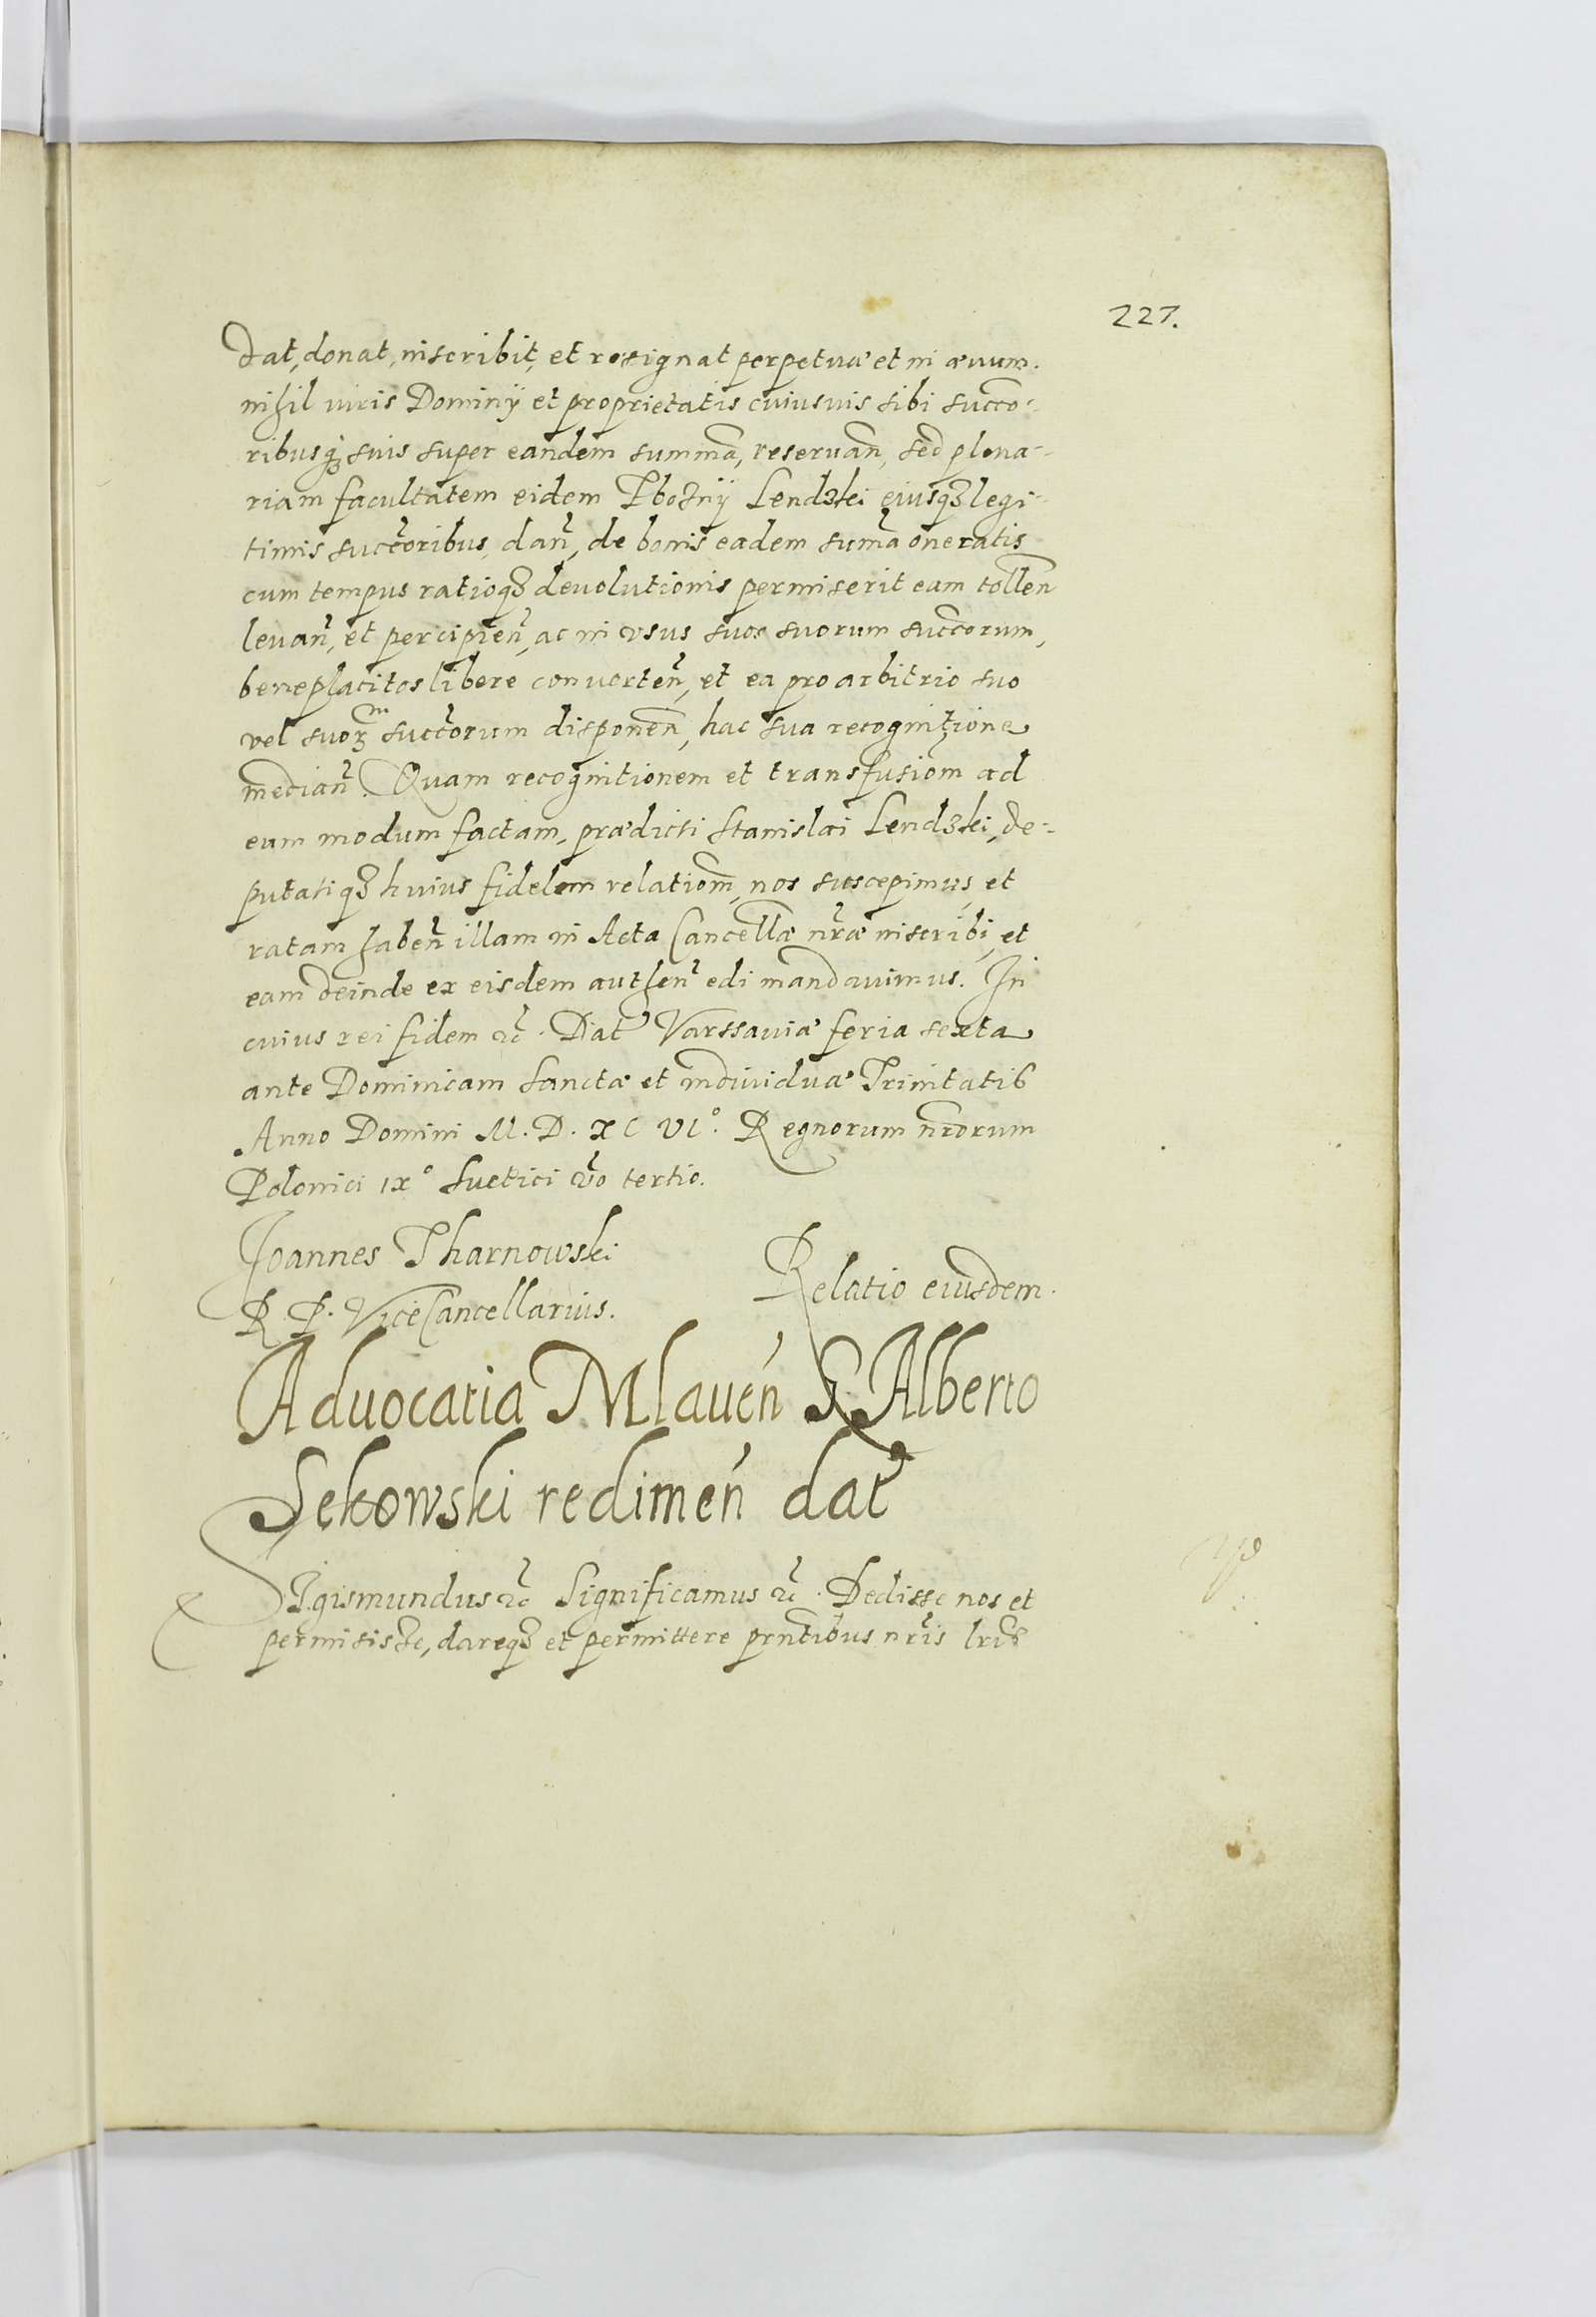 227.
Dat, donat, inscribit, et resignat perpetuæ et in ævum.
nihil iuris Dominÿ et proprietatis cuiusuis sibi succo-
ribusq₃ suis super eandem summã, reseruañ, sed plena-
riam facultatem eidem Thoznÿ Lendzki eiusq₃ legi-
timis succoribus, dañ, de bonis eadem suma oneratis
cum tempus ratioq₃ deuolutionis permiserit eam tolleñ
leuañ, et percipieñ, ac in vsus suos suorum succorum,
beneplacitos libere conuerteñ, et ea pro arbitrio suo
vel suoꝝ succorum disponeñ, hac sua recognitione
mediañ. Quam recognitionem et transfusiom̃ ad
eum modum factam, prædicti Stanislai Lendzki, de-
putatiq₃ huius fidelem relatiom̃, nos suscepimus, et
ratam habeñ illam in Acta Cancellæ nr̃æ inscribi, et
eam deinde ex eisdem autheñ edi mandauimus. In
cuius rei fidem ꝛc̃. Dat Varssauiæ feria sexta
ante Dominicam Sanctæ et indiuiduæ Trinitatis
Anno Domini M. D. XC VI°. Regnorum nr̃orum
Polonici IX° Suetici v̈o tertio.
Joannes Tharnowski
R. P. ViceCancellarius.
Relatio eiusdem.
Aduocatia Mlaueñ G. Alberto
Sękowski redimeñ dat
Sigismundus ꝛc̃ Significamus ꝛc̃. Dedisse nos et
permisisse, dareq₃ et permittere prñtibus nr̃is lr̃is